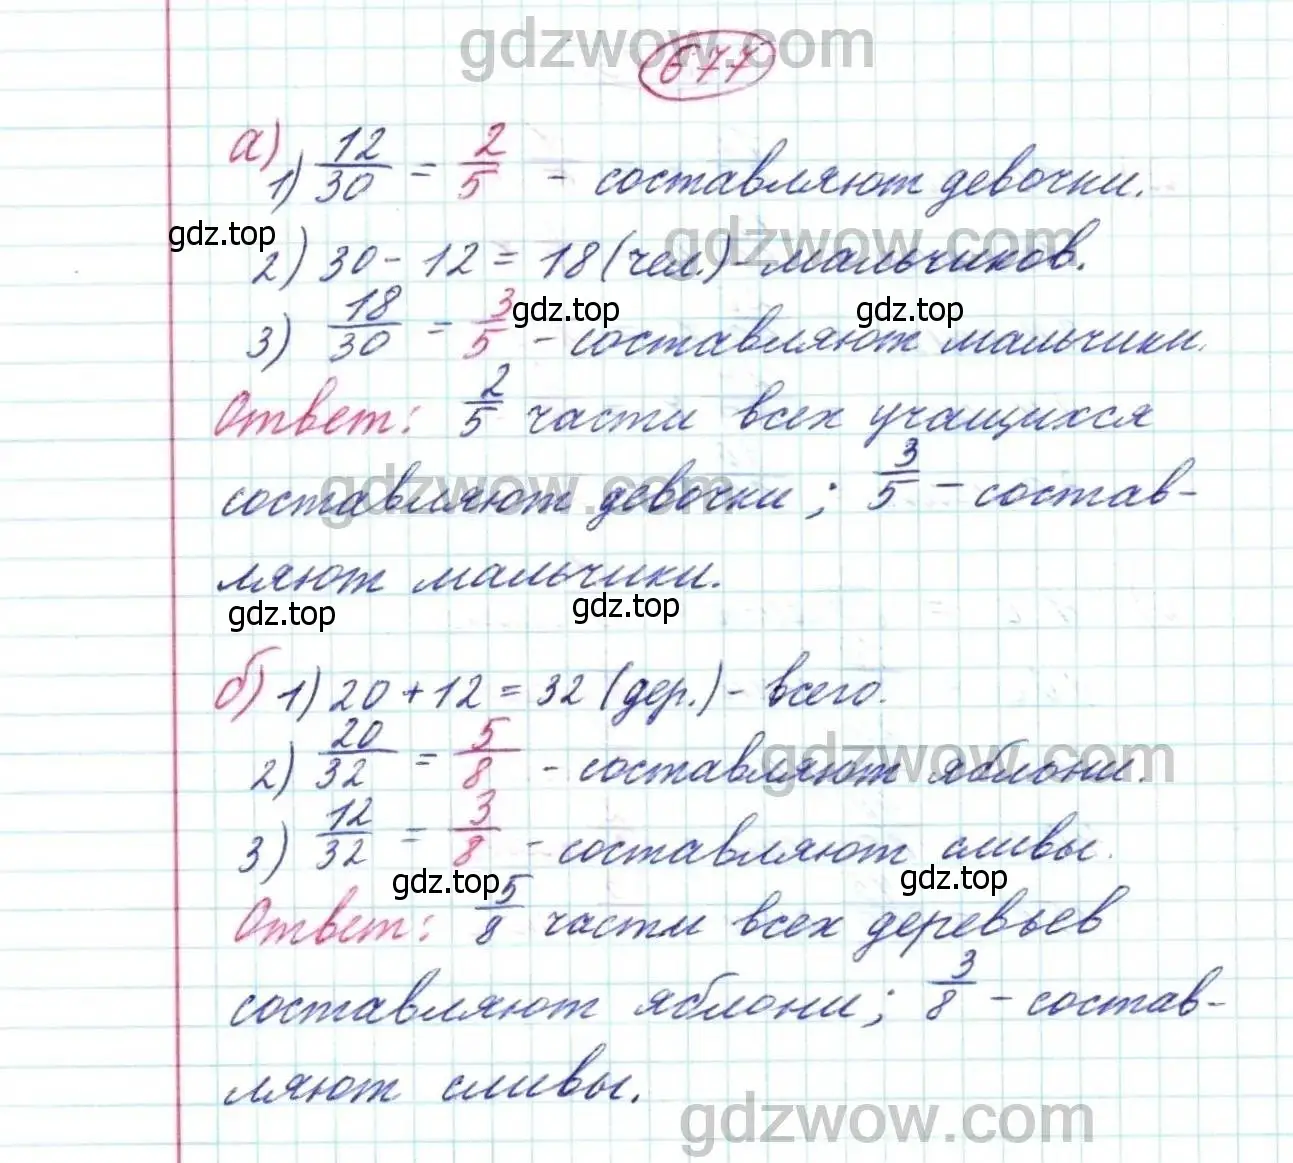 gdzwow.com
677
а) 1) 12/30 = 2/5 - составляют девочки.
gdz.top
gdzwow.com
2) 30 - 12 = 18 (чел.) - мальчиков.
gdz.top gdz.top
3) 18/30 = 3/5 - составляют мальчики.
Ответ: 2/5 части всех учащихся
gdzwow.com
составляют девочки; 3/5 - состав-
ляют мальчики.
gdz.top gdz.top
б) 1) 20 + 12 = 32 (дер.) - всего.
gdzwow.com
2) 20/32 = 5/8 - составляют яблони.
3) 12/32 = 3/8 - составляют сливы.
gdz.top gdz.top
Ответ: 5/8 части всех деревьев
составляют яблони; 3/8 - состав-
ляют сливы.
gdzwow.com